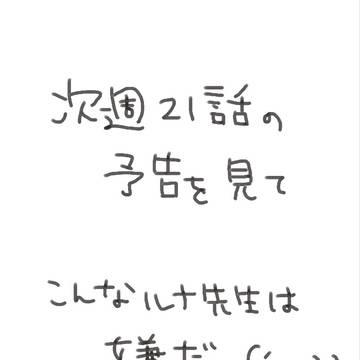 次週21話の
予告を見て
こんなルナ先生は
嫌だ